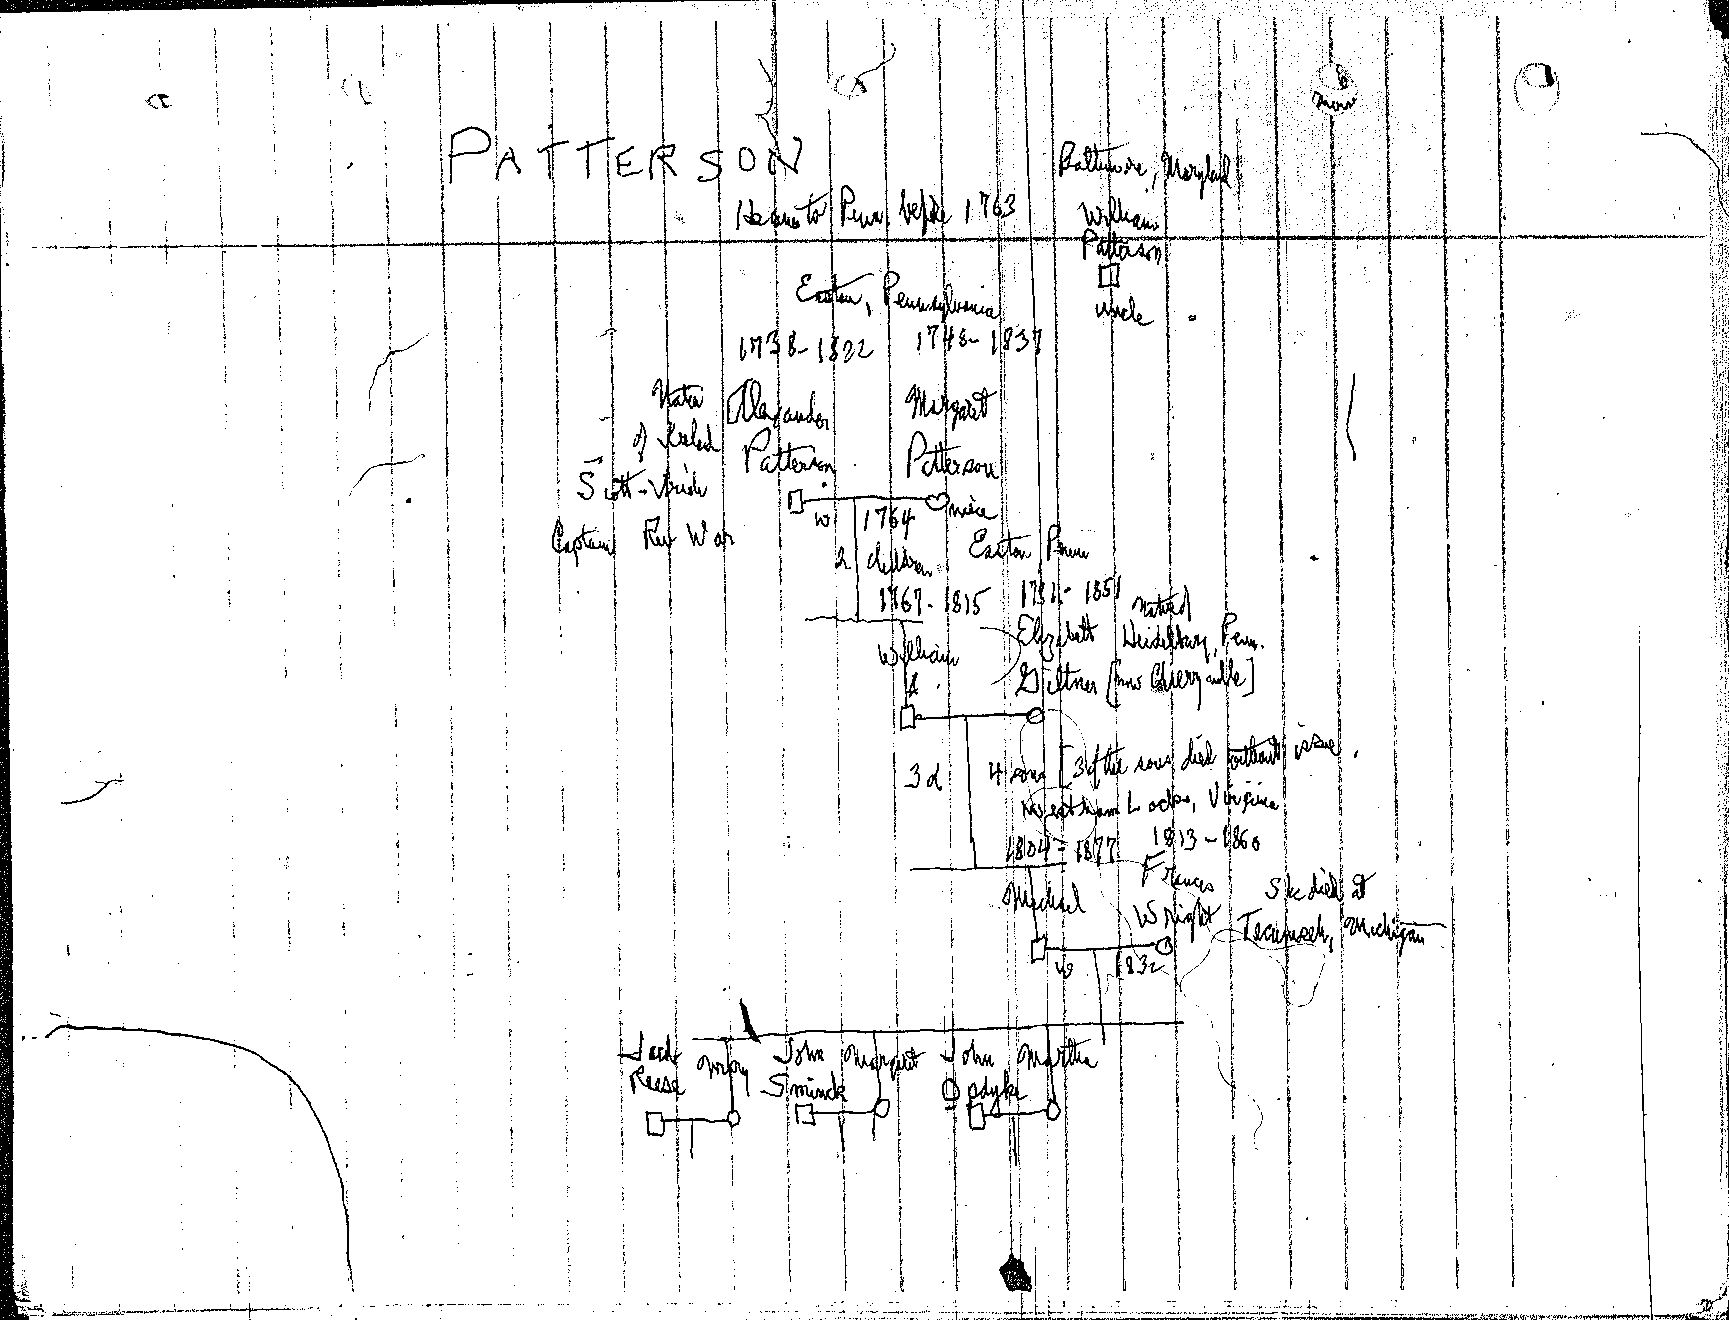 PATTERSON
Baltimore, Maryland
He came to Penn. before 1763
William
Patterson
uncle
Easton, Pennsylvania
1738-1822
1748-1837
Native
of Ireland
Scott-Irish
Captain Rev War
Alexander
Patterson
Margaret
Patterson
niece
w 1764
2 children
Easton Penn
1767-1815
1781-1851
William
A.
Elizabeth
Giltner
Native of
Heidelburg, Penn.
[now Cherryville]
3 d
4 sons [3 of the sons died without issue.
Westham Locks, Virginia
1804-1877
1813-1860
Michael
Frances
Wright
She died at
Tecumseh, Michigan
w 1832
Reese
John
Sminck
Margaret
John
Opdyke
Martha